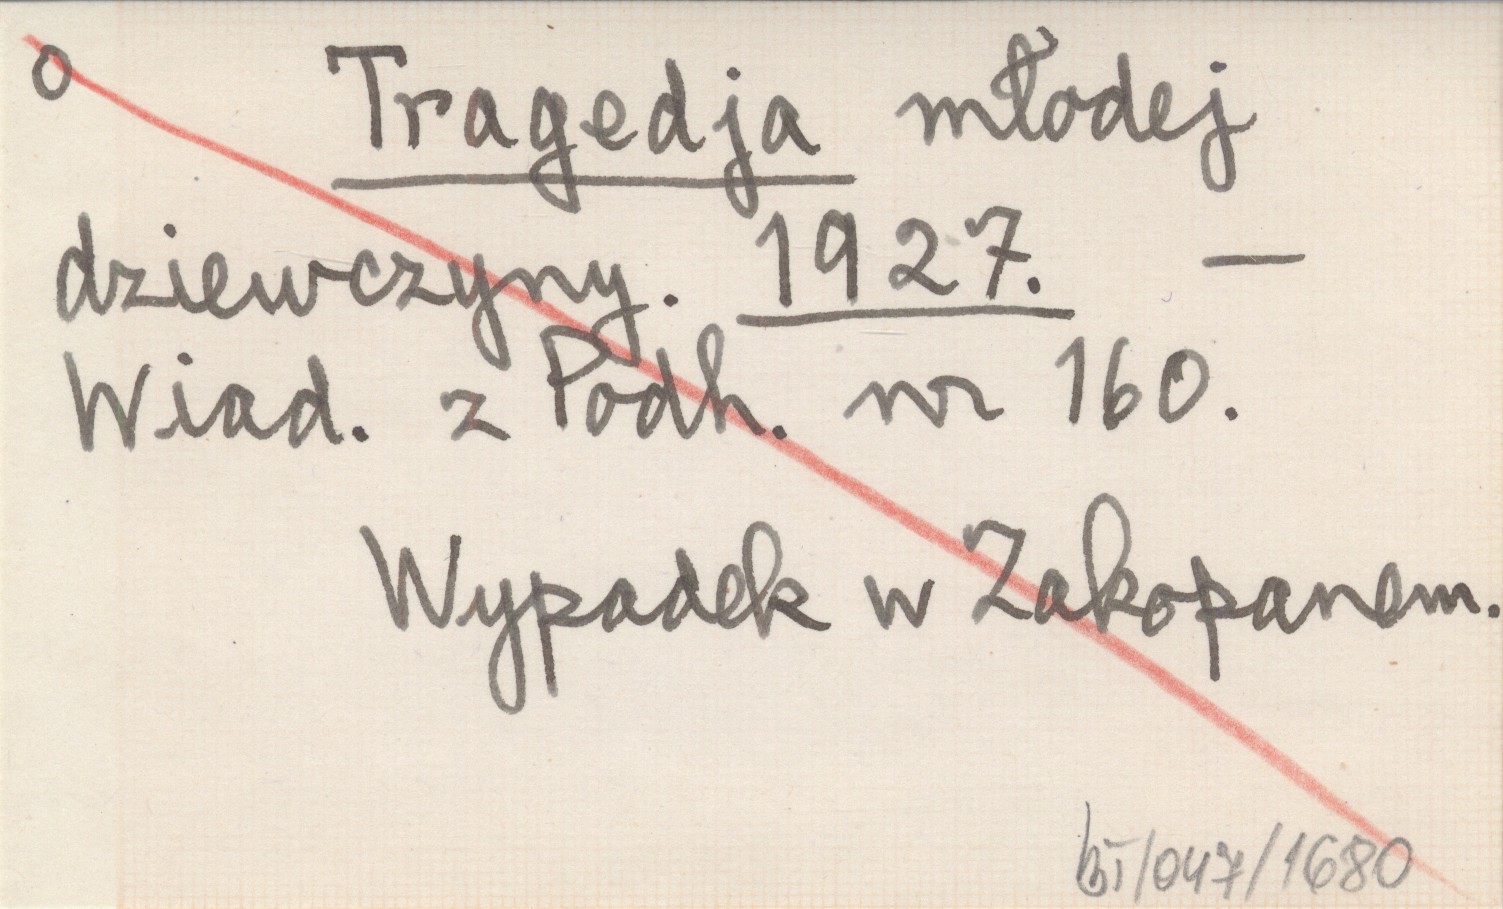 o Tragedja młodej
dziewczyny. 1927. —
Wiad. z Podh. nr 160.
Wypadek w Zakopanem.
/047/1680